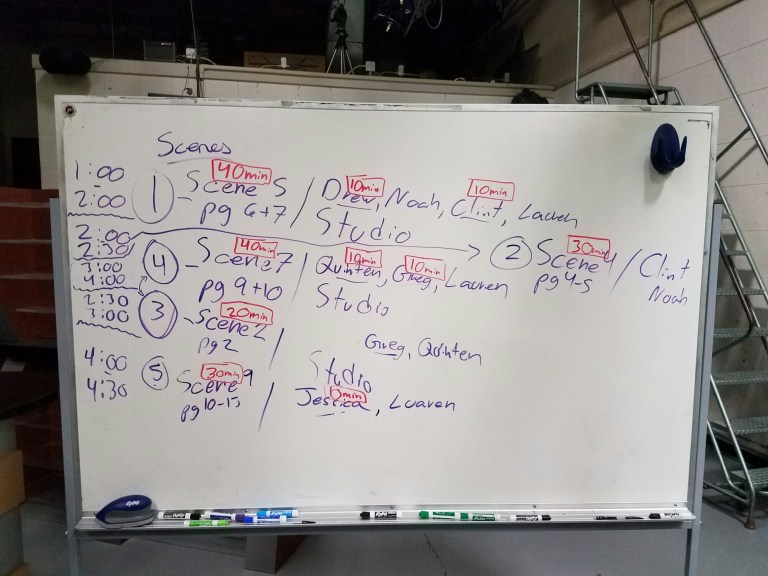 Scenes
1:00
2:00
1 - Scene 5 / Drew, Noah, Clint, Lauren
40min
10min
10min
pg 6+7
Studio
2:00
2:30
2 Scene 4 / Clint
30min
pg 4-5
Noah
3:00
4:00
4 - Scene 7 / Quinten, Greg, Lauren
40min
10min
10min
pg 9+10
Studio
2:30
3:00
3 - Scene 2 /
20min
pg 2
Greg, Quinten
4:00
4:30
5 Scene 9 /
30min
pg 10-15
Studio
Jessica, Luaren